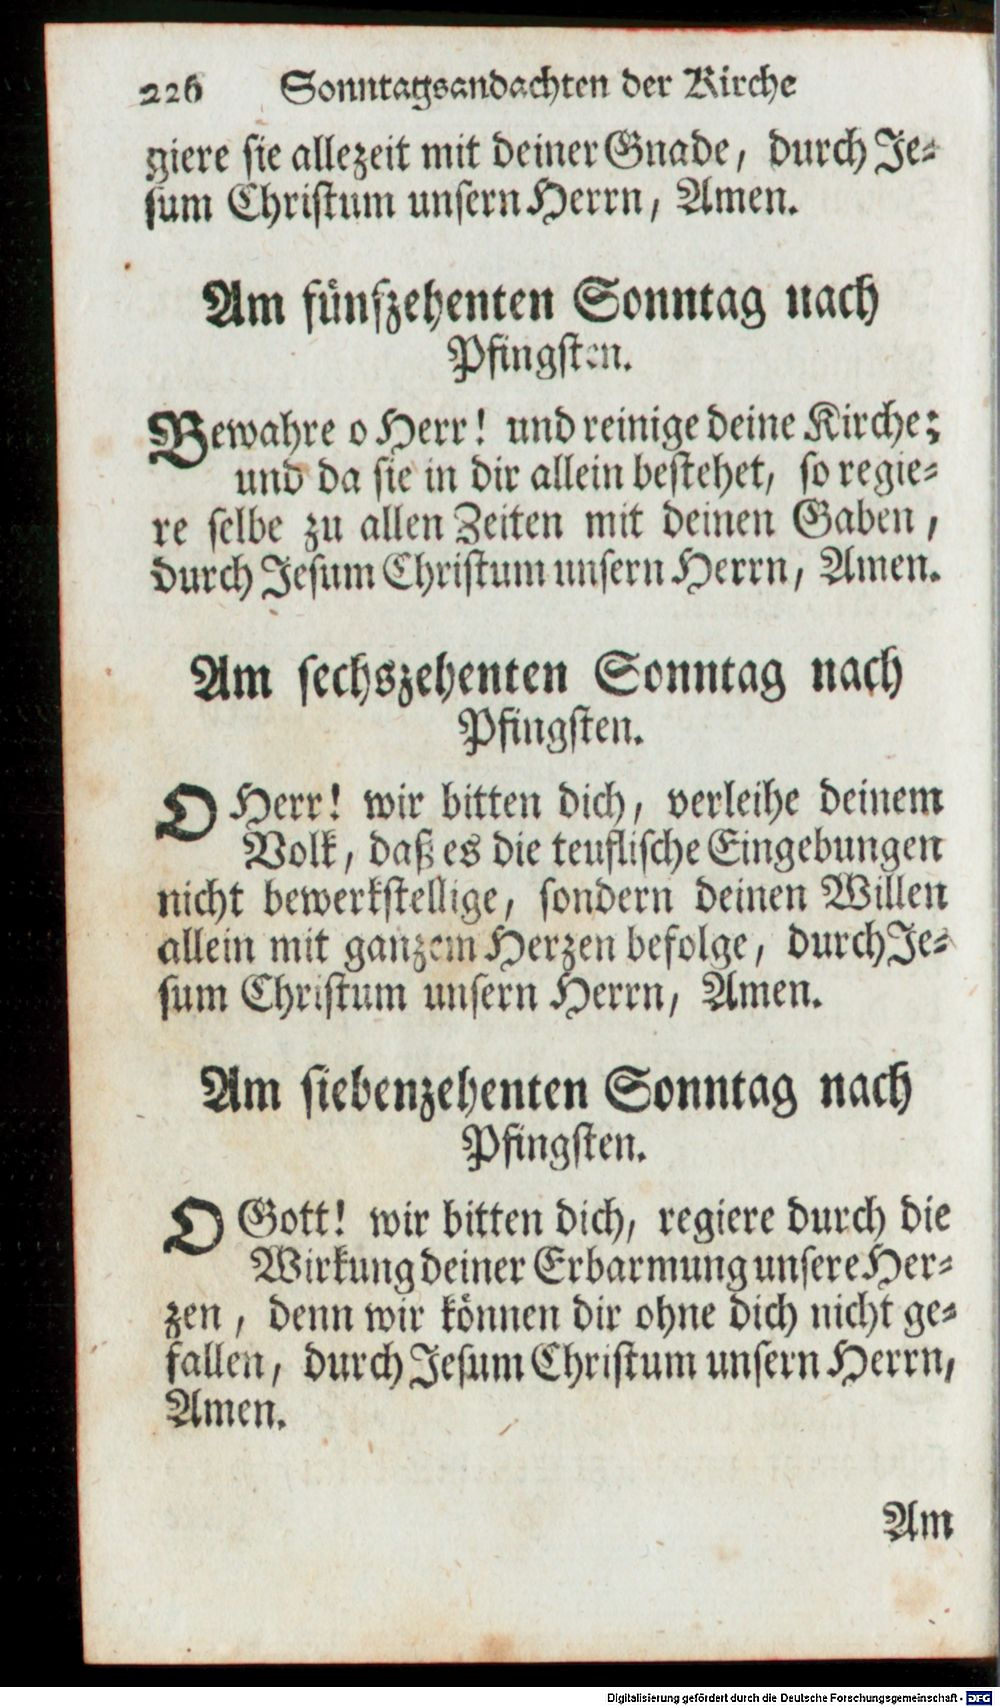 226 Sonntagsandachten der Kirche
giere sie allezeit mit deiner Gnade, durch Je-
sum Christum unsern Herrn, Amen.
Am fünfzehenten Sonntag nach
Pfingsten.
Bewahre o Herr! und reinige deine Kirche;
und da sie in dir allein bestehet, so regie-
re selbe zu allen Zeiten mit deinen Gaben,
durch Jesum Christum unsern Herrn, Amen.
Am sechszehenten Sonntag nach
Pfingsten.
O Herr! wir bitten dich, verleihe deinem
Volk, daß es die teuflische Eingebungen
nicht bewerkstellige, sondern deinen Willen
allein mit ganzem Herzen befolge, durch Je-
sum Christum unsern Herrn, Amen.
Am siebenzehenten Sonntag nach
Pfingsten.
O Gott! wir bitten dich, regiere durch die
Wirkung deiner Erbarmung unsere Her-
zen, denn wir können dir ohne dich nicht ge-
fallen, durch Jesum Christum unsern Herrn,
Amen.
Am
Digitalisierung gefördert durch die Deutsche Forschungsgemeinschaft - DFG